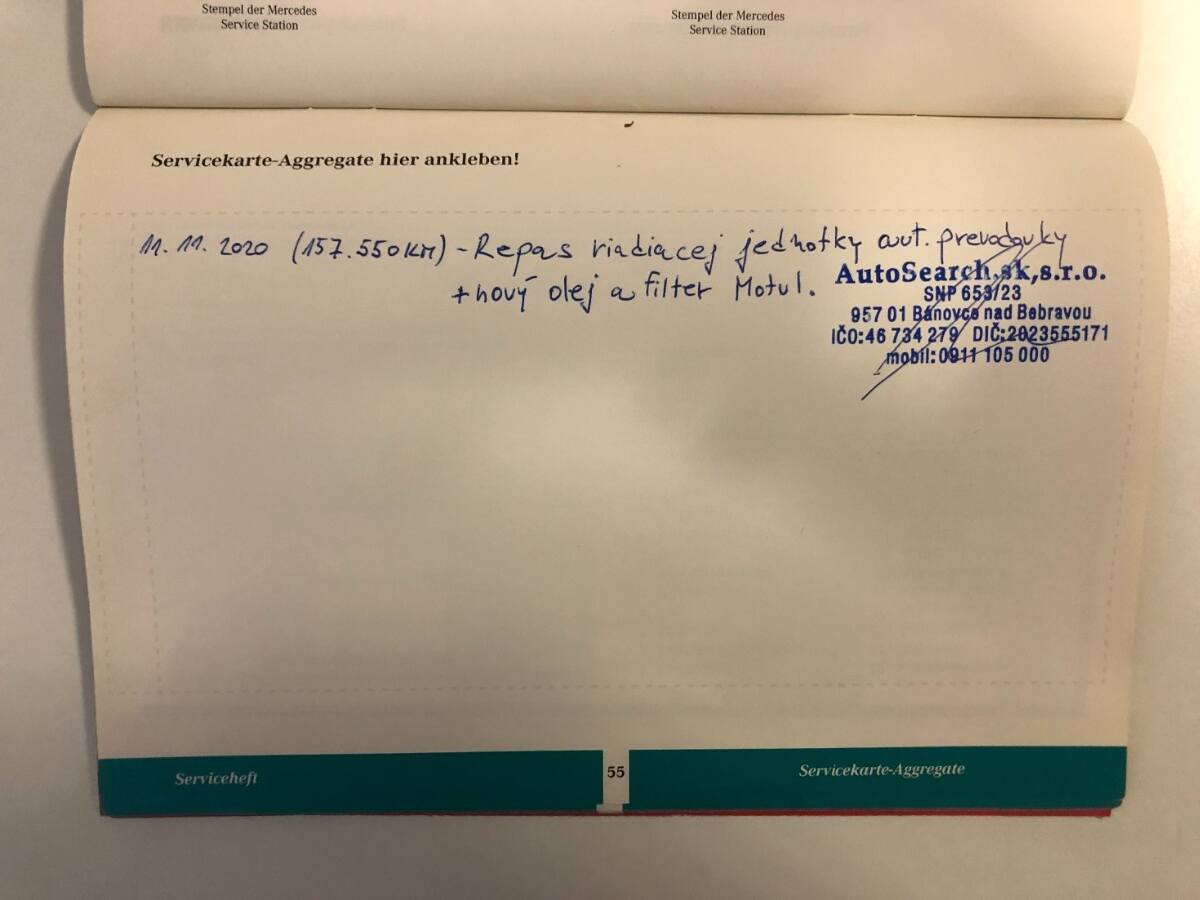 Stempel der Mercedes
Service Station
Stempel der Mercedes
Service Station
Servicekarte-Aggregate hier ankleben!
11. 11. 2020 (157.550KM) - Repas riadiacej jednotky aut. prevodovky
+ nový olej a filter Motul.
AutoSearch.sk,s.r.o.
SNP 653/23
957 01 Bánovce nad Bebravou
IČO:46 734 279 DIČ:2023555171
mobil:0911 105 000
Serviceheft
55
Servicekarte-Aggregate